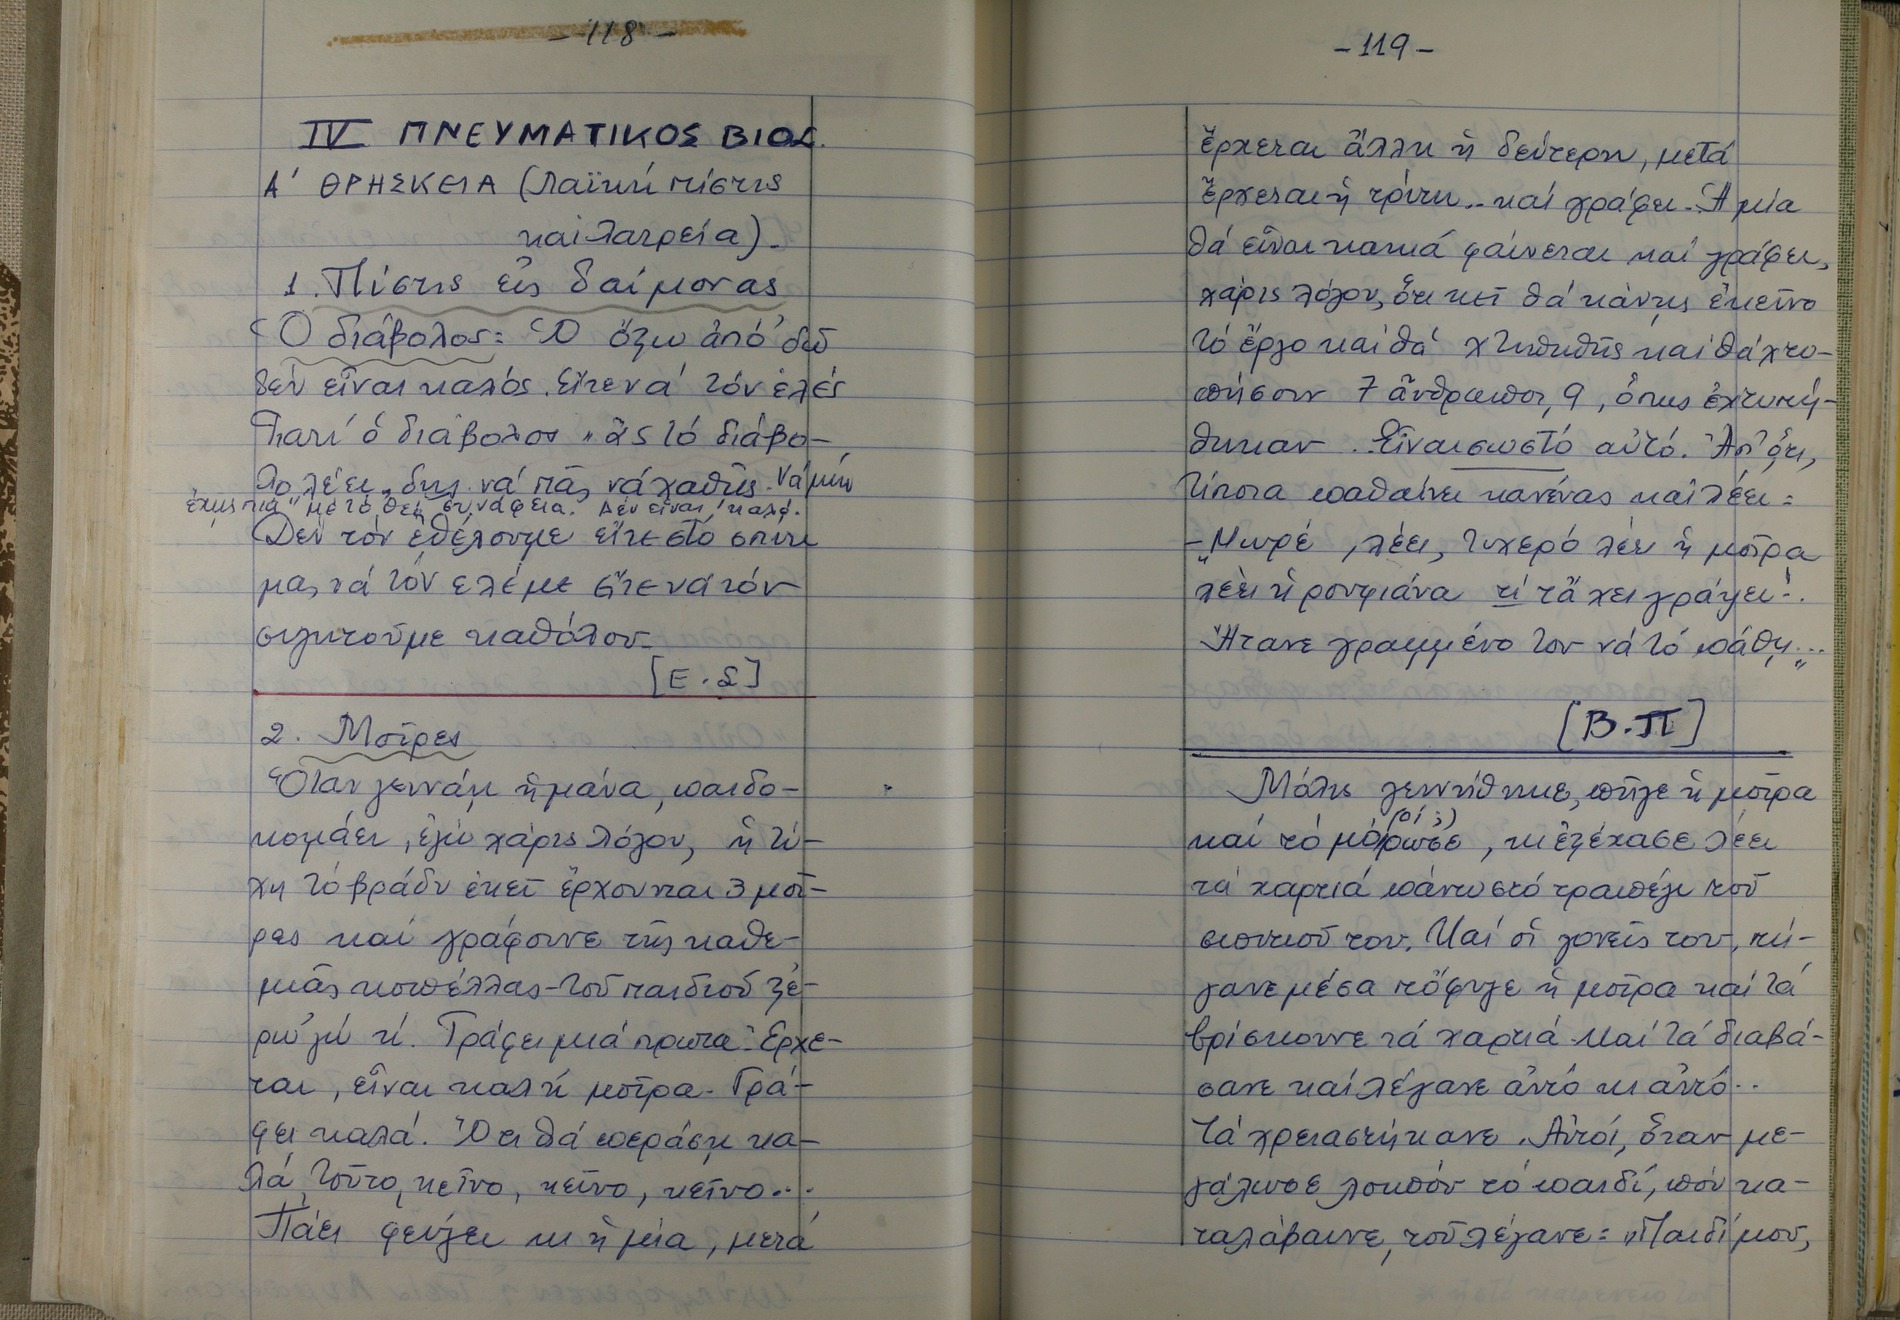 - 118 -
IV ΠΝΕΥΜΑΤΙΚΟΣ ΒΙΟΣ.
Α΄ ΘΡΗΣΚΕΙΑ (Λαϊκή πίστις
καί λατρεία).
1. Πίστις εἰς δαίμονας
Ὁ διάβολος: Ὁ ὄξω ἀπό 'δῶ
δέν εἶναι καλός. Εἴτε νά τόν ἐλές
Γιατί ὁ διάβολος „ ἄς τό διάβο-
λο λέει „ νά πᾶς νά χαθῆς. Νά μήν
ἔχης πιά „ μέ τό Θεό συνάφεια. Δέν εἶναι καλό.
Δέν τόν ἐθέλουμε εἴτε στό σπίτι
μας νά τόν ελέμε εἴτε νά τόν
συζητοῦμε καθόλου.
[Ε.Σ]
2. Μοῖρες
Ὅταν γεννάῃ ἡ μάνα, παιδο-
κομάει, ἐγώ χάρις λόγου, ἡ τύ-
χη τό βράδυ ἐκεῖ ἔρχουνται 3 μοῖ-
ρες καί γράφουνε τῆς καθε-
μιᾶς κοπέλλας - τοῦ παιδιοῦ ξέ-
ρω 'γώ τί. Γράφει μιά πρῶτα. Ἔρχε-
ται, εἶναι καλή μοῖρα. Γρά-
φει καλά. Ὅτι θά περάσῃ κα-
λά, τοῦτο, κεῖνο, κεῖνο, κεῖνο...
Πάει φεύγει κι ἡ μία, μετά
- 119 -
ἔρχεται ἄλλη ἡ δεύτερη, μετά
ἔρχεται ἡ τρίτη.. καί γράφει. Ἡ μία
θά εἶναι κακιά φαίνεται καί γράφει,
χάρις λόγου, ὅτι κεῖ θά κάνῃς ἐκεῖνο
τό ἔργο καί θά χτυπηθῆς καί θά χτυ-
πήσουν 7 ἄνθρωποι, 9, ὅπως ἐχτυπή-
θηκαν. Εἶναι σωστό αὐτό. Ἀπ' ὅτι,
τίποτα παθαίνει κανένας καί λέει:
- „Μωρέ, λέει, τυχερό λέει ἡ μοῖρα
λέει ἡ ρουφιάνα τί τἄχει γράψει!.
Ἤτανε γραμμένο του νά τό πάθῃ...„
[Β.Π]
Μόλις γεννήθηκε, πῆγε ἡ μοῖρα
(οί ;)
καί τό μόρωσε, κι ἐξέχασε λέει
τά χαρτιά πάνω στό τραπέζι τοῦ
σπιτιοῦ του. Καί οἱ γονεῖς του, πή-
γανε μέσα πὄφυγε ἡ μοῖρα καί τά
βρίσκουνε τά χαρτιά. Καί τά διαβά-
σανε καί λέγανε αὐτό κι αὐτό..
Τά χρειαστήκανε. Αὐτοί, ὅταν με-
γάλωσε λοιπόν τό παιδί, πού κα-
ταλάβαινε, τοῦ λέγανε: „Παιδί μου,